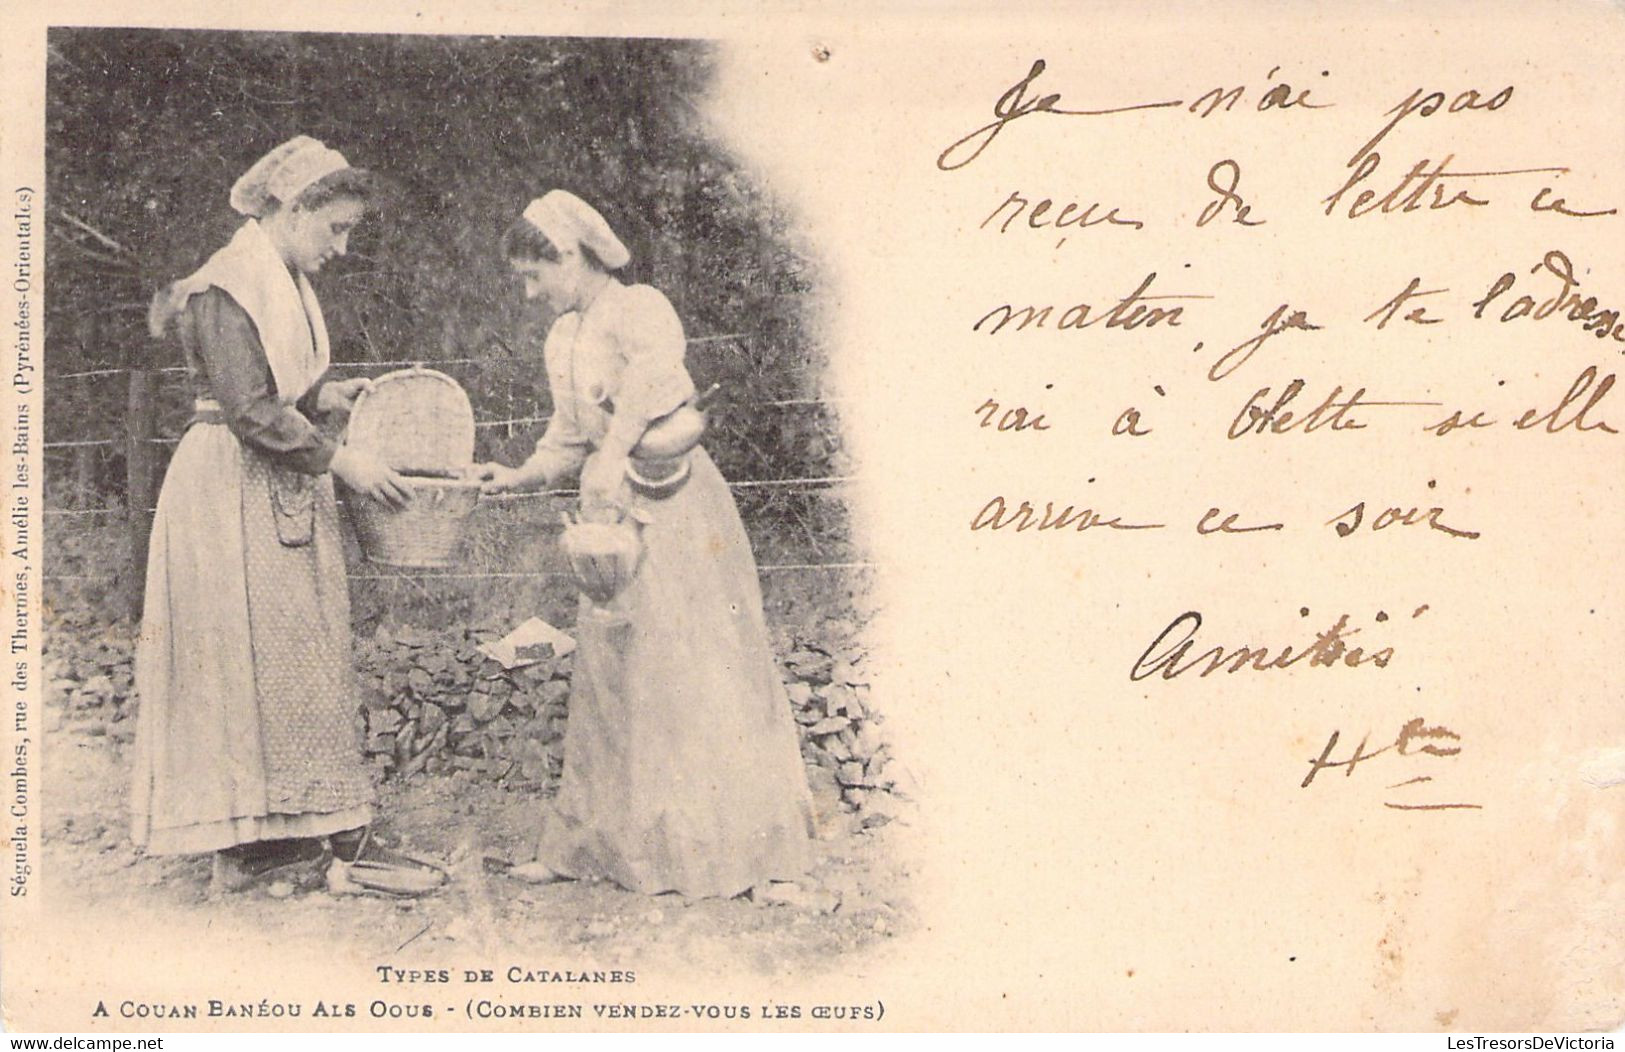 Séguela-Combes, rue des Thermes, Amélie les-Bains (Pyrénées-Orientales)
Je n'ai pas
reçu de lettre ce
matin, je te l'adresse
rai à Olette si elle
arrive ce soir
Amitiés
Hte
TYPES DE CATALANES
A COUAN BANÉOU ALS OOUS - (COMBIEN VENDEZ-VOUS LES ŒUFS)
https://www.delcampe.net
LesTresorsDeVictoria